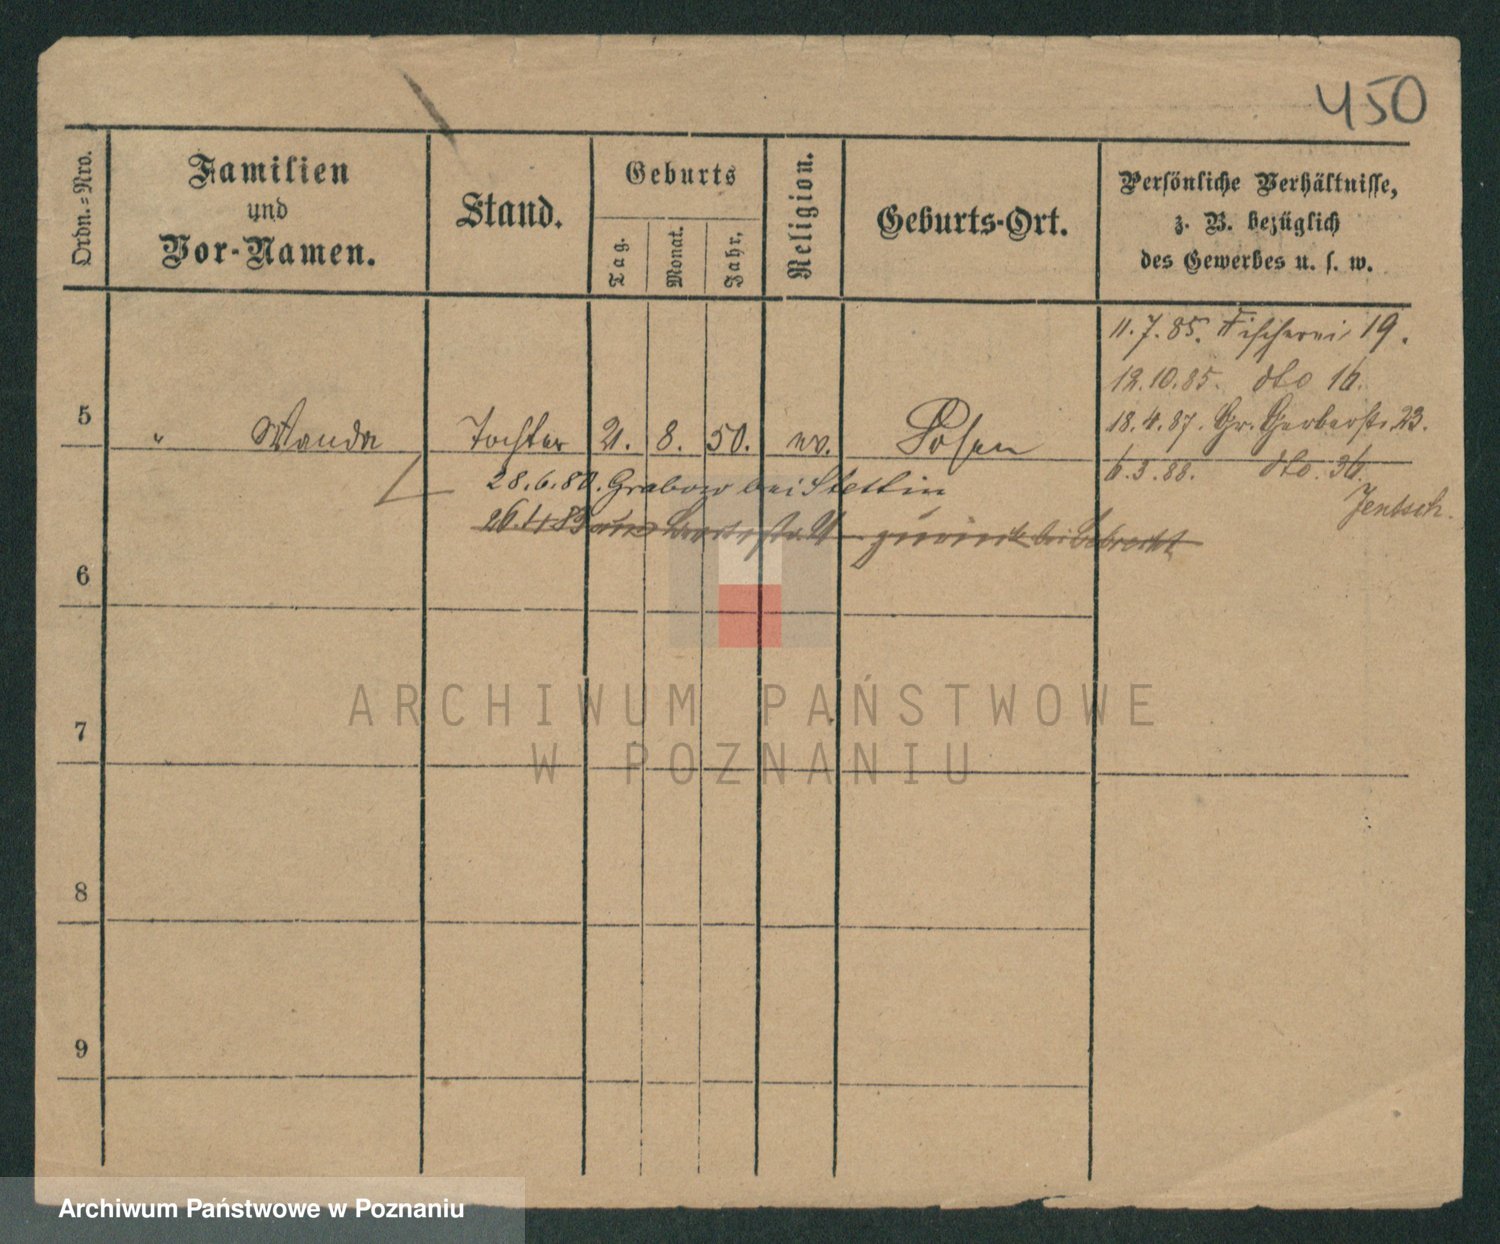 450
Ordn.=Nro.
Familien
und
Vor-Namen.
Stand.
Geburts
Tag.
Monat.
Jahr,
Religion.
Geburts-Ort.
Persönliche Verhältnisse,
z. B. bezüglich
des Gewerbes u. s. w.
11. 7. 85. Fischerei 19.
12. 10. 85. dto 16.
18. 4. 87. Gr. Gerberstr. 23.
6. 3. 88. dto. 36.
Jentsch.
5 " Wanda Tochter 21. 8. 50. ev. Posen
28. 6. 80. Grabow bei Stettin
26. 4 83 zurück bei
6
7
8
9
ARCHIWUM PAŃSTWOWE
W POZNANIU
Archiwum Państwowe w Poznaniu